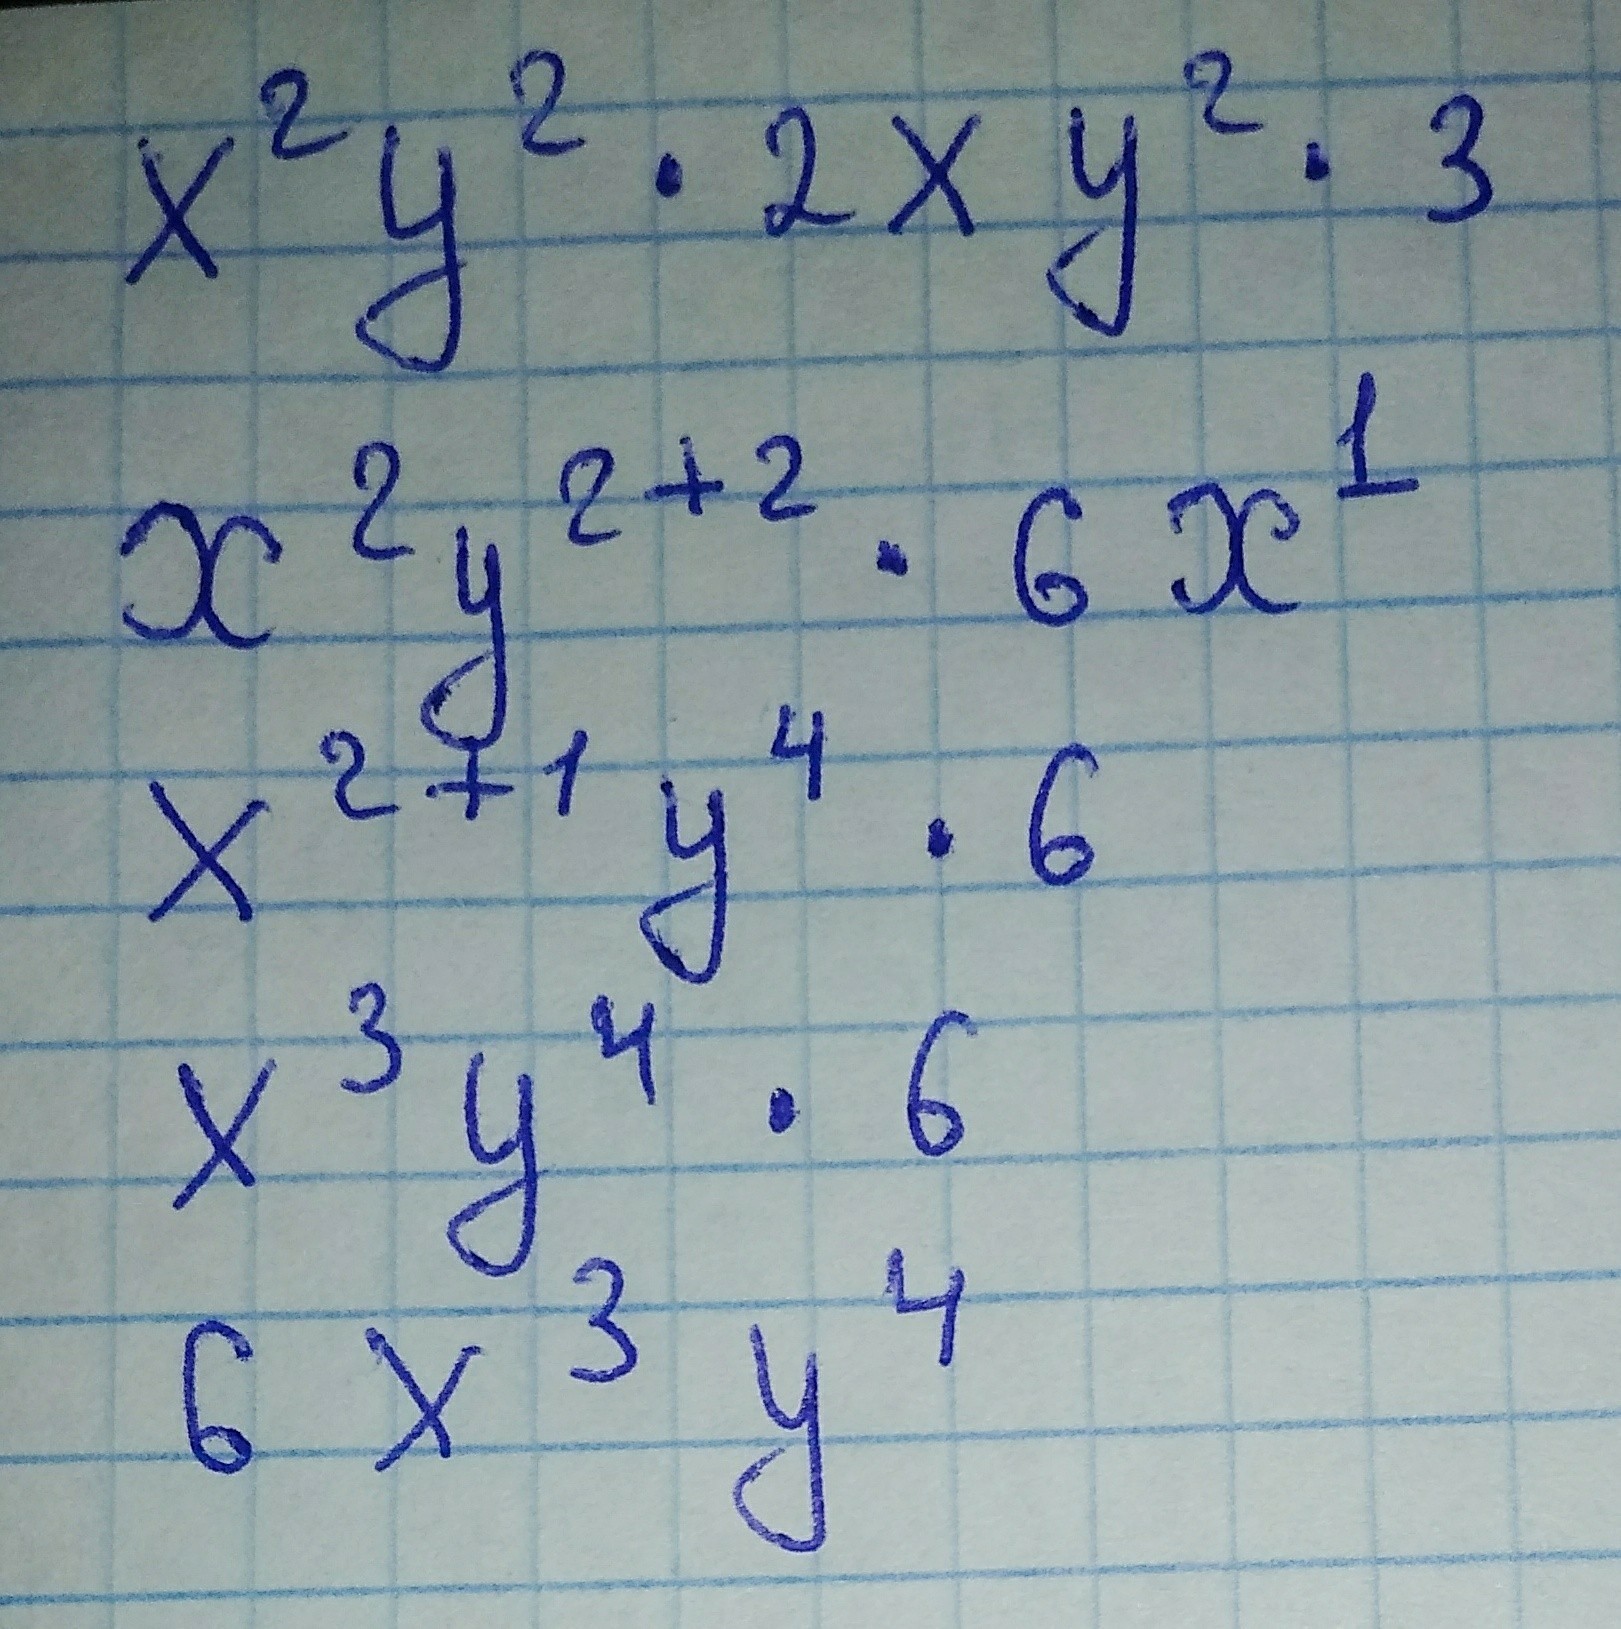 x²y² · 2xy² · 3
x²y²⁺² · 6x¹
x²⁺¹y⁴ · 6
x³y⁴ · 6
6x³y⁴